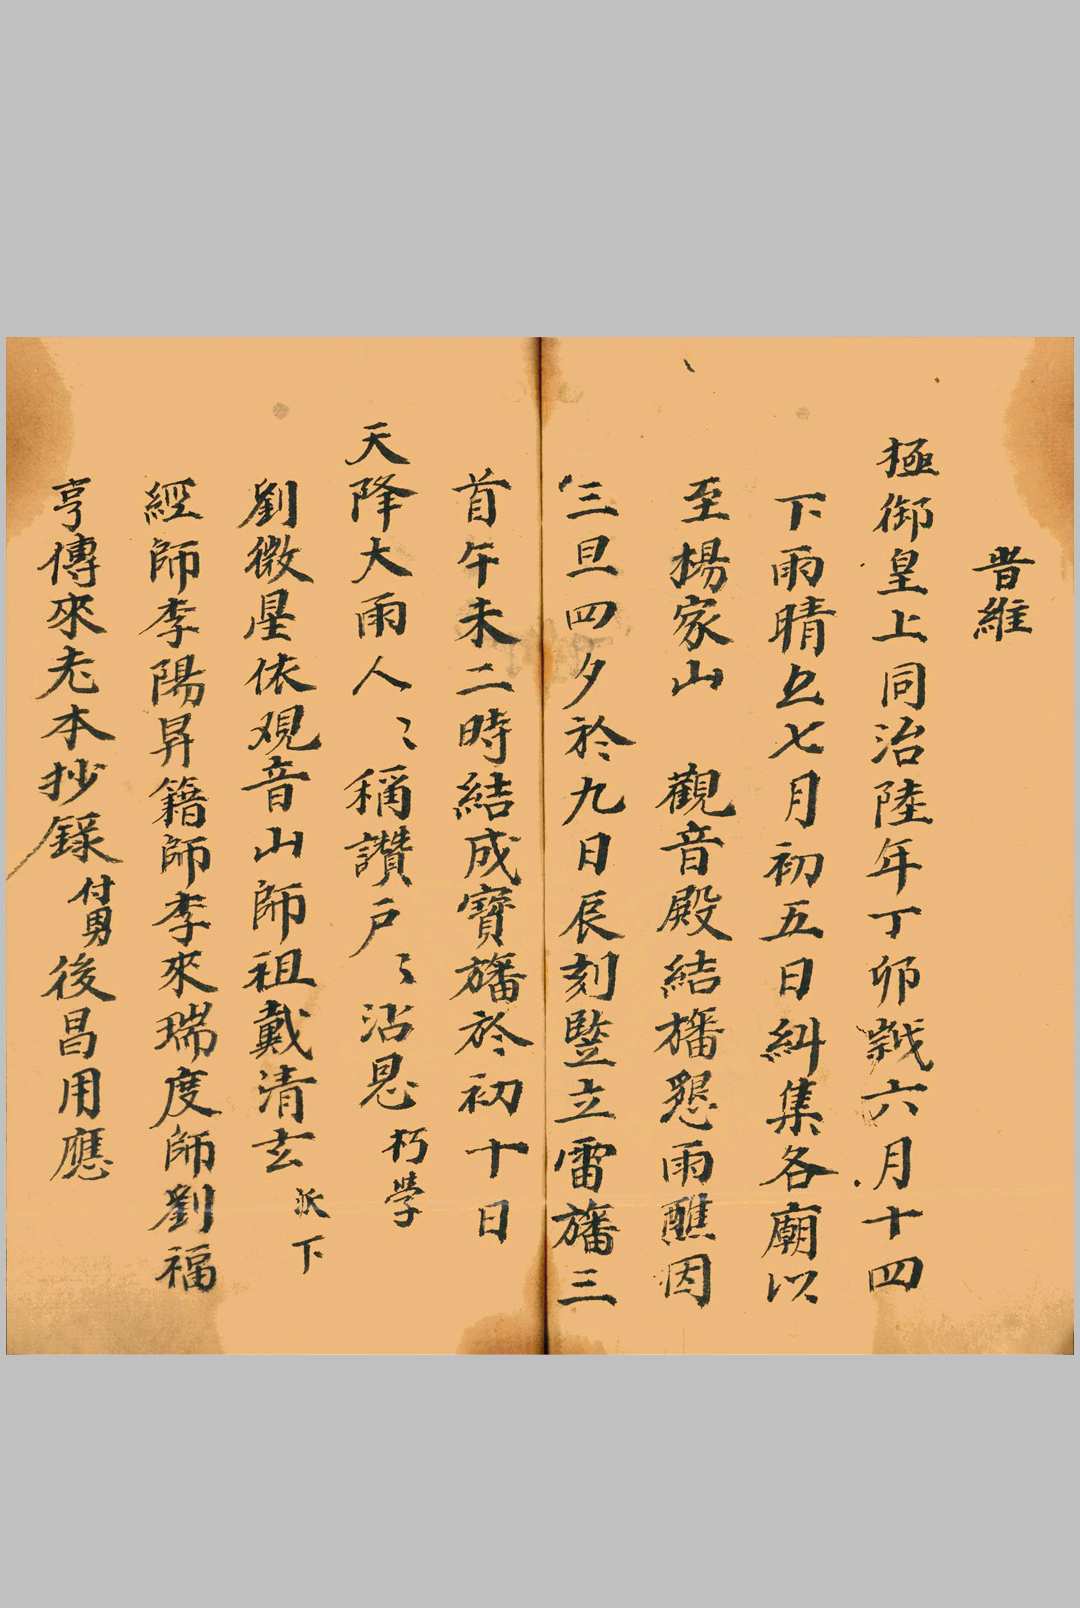 昔維
極御皇上同治陸年丁卯歲六月十四
下雨晴至七月初五日糾集各廟以
至楊家山 觀音殿結旛懇雨醮因
三旦四夕於九日辰刻豎立雷旛三
首午未二時結成寶旛於初十日
天降大雨人〻稱讚戶〻沾恩 朽學
劉微星依观音山師祖戴清玄 派下
經師李陽昇籍師李來瑞度師劉福
亨傳來老本抄錄 付男 後昌用應